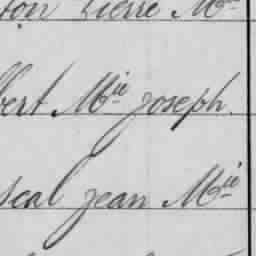 ton Pierre M
bert Mie joseph.
scal jean Mie